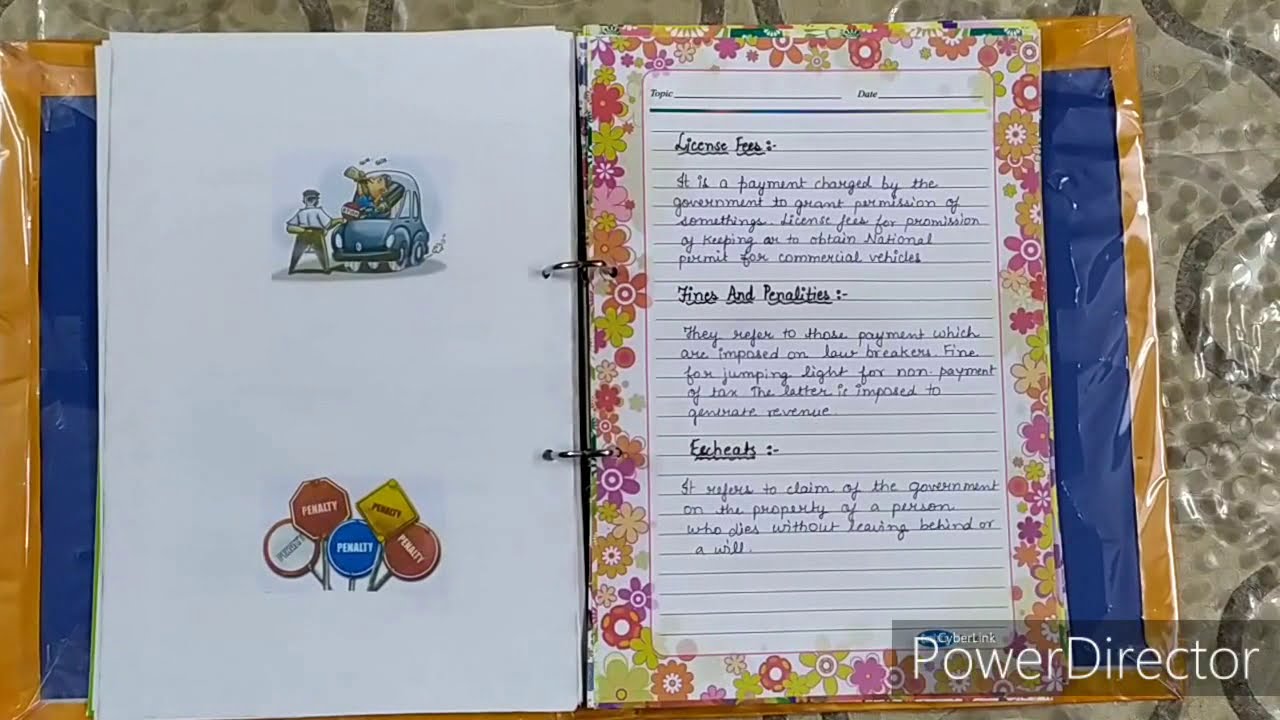 PENALTY
PENALTY
PENALTY
PENALTY
Topic Date
License Fees :-
It is a payment charged by the
government to grant permission of
somethings. License fees for promission
of keeping or to obtain National
permit for commercial vehicles
Fines And Penalities :-
They refer to those payment which
are imposed on law breakers. Fine
for jumping light for non-payment
of tax The latter is imposed to
generate revenue
Escheats :-
It refers to claim of the government
on the property of a person
who dies without leaving behind or
a will.
CyberLink
PowerDirector